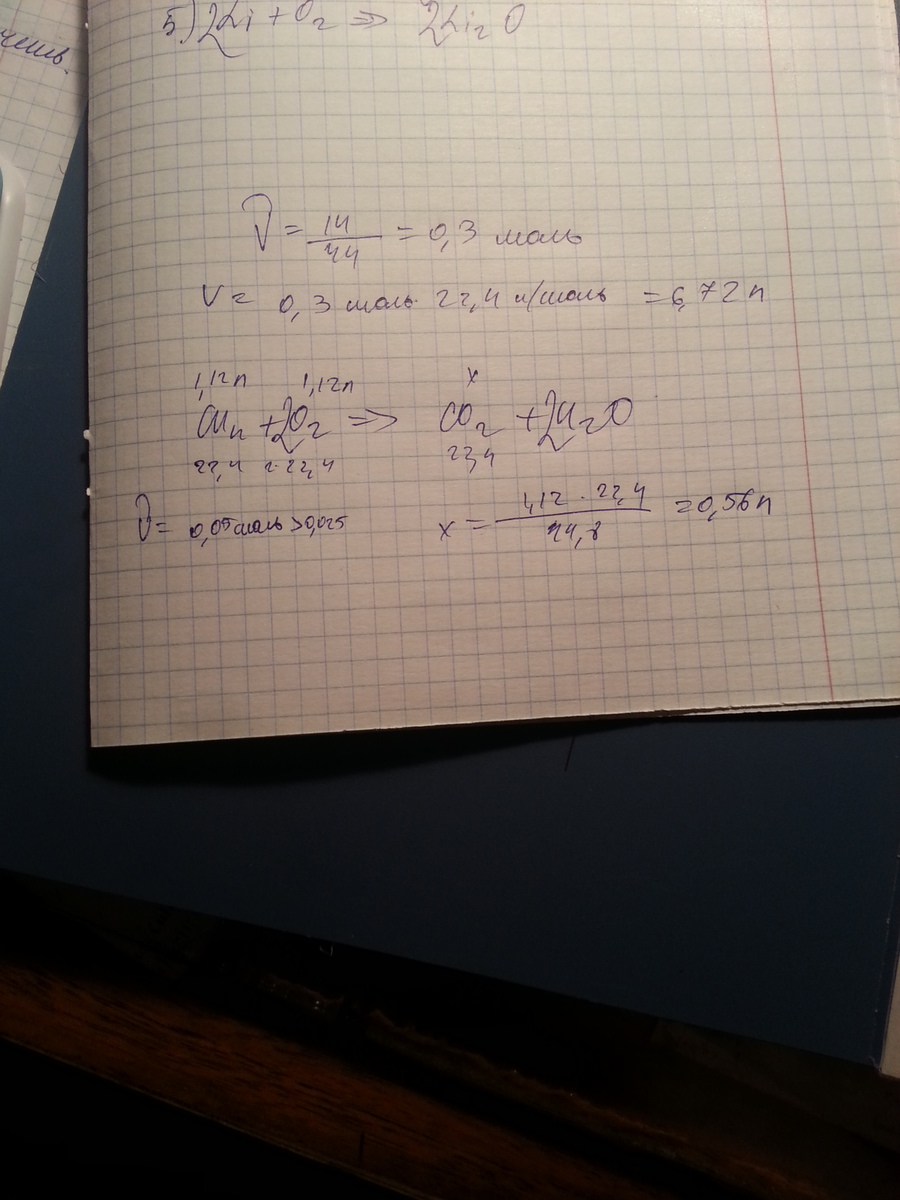 чешь.
5) 2Li + O₂ ⇒ 2Li₂O
ν = 14/44 = 0,3 моль
V = 0,3 моль · 22,4 л/моль = 6,72 л
1,12л 1,12л x
CH₄ + 2O₂ ⇒ CO₂ + 2H₂O
22,4 2·22,4 22,4
ν = 0,05 моль > 0,025 x = 1,12 · 22,4 / 44,8 = 0,56 л